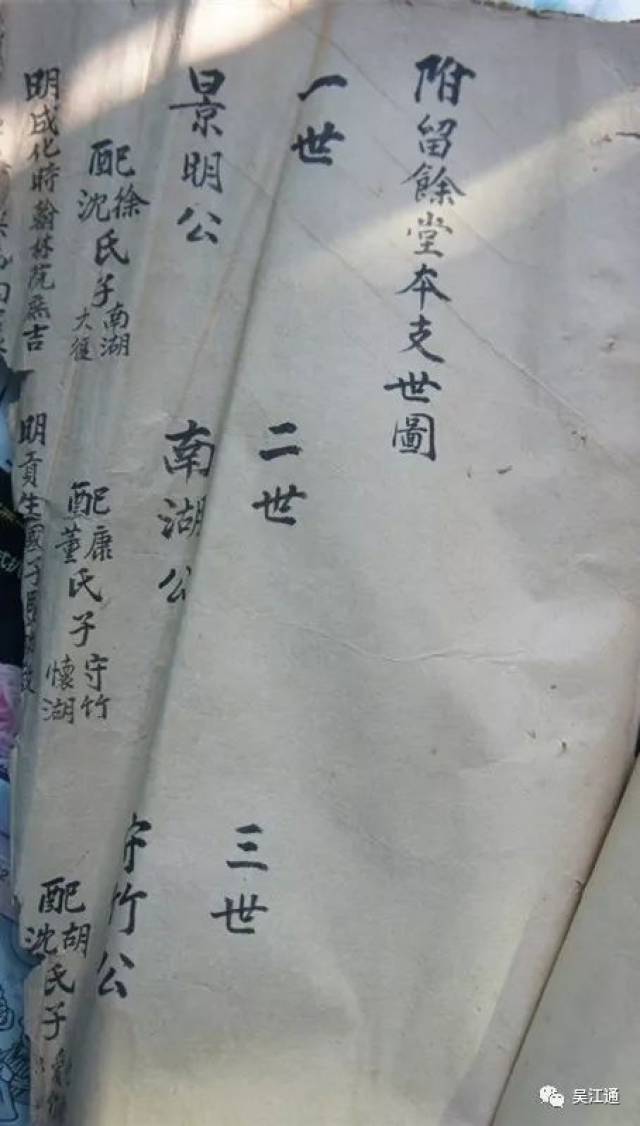 附留餘堂本支世圖
一世
景明公
配徐沈氏子南湖大徑
明成化時翰林院庶吉
二世
南湖公
配康董氏子守竹懷湖
明貢生國子
三世
守竹公
配胡沈氏子
吴江通